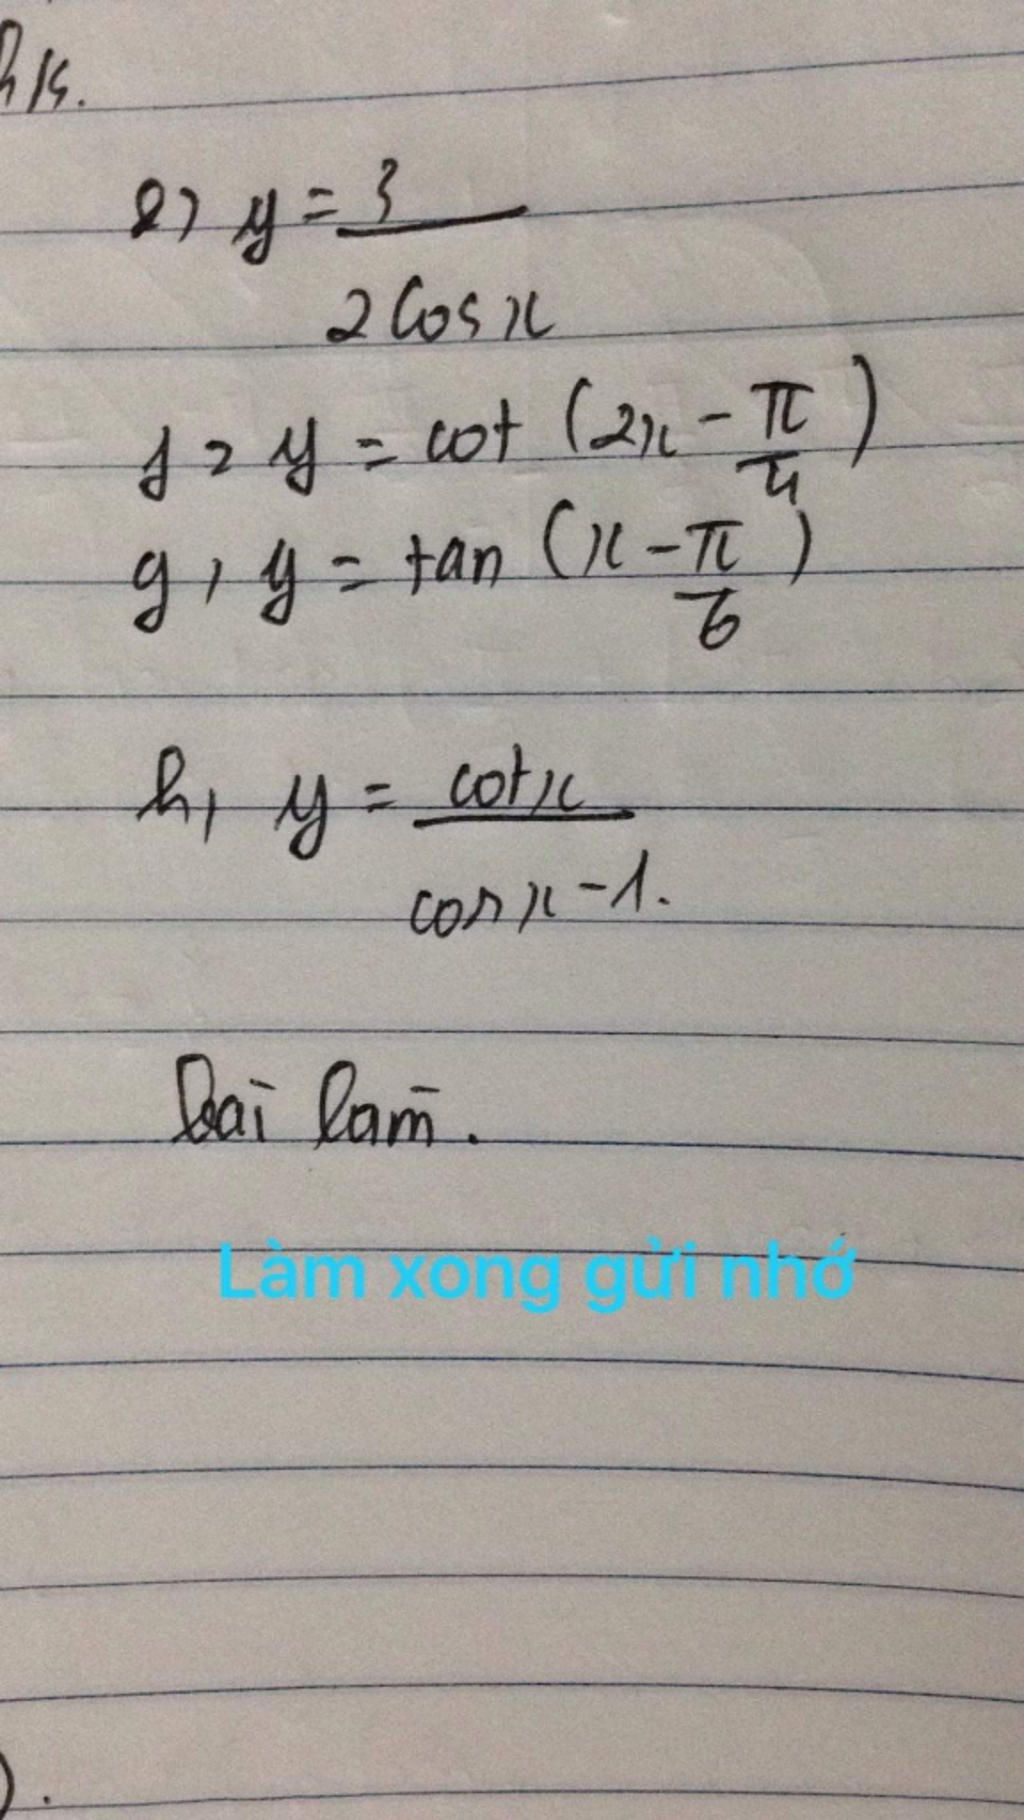 h/s.
e) y = 3 / 2 cos x
f) y = cot (2x - π/4)
g, y = tan (x - π/6)
h, y = cot x / cos x - 1.
bài làm.
Làm xong gửi nhớ
) .